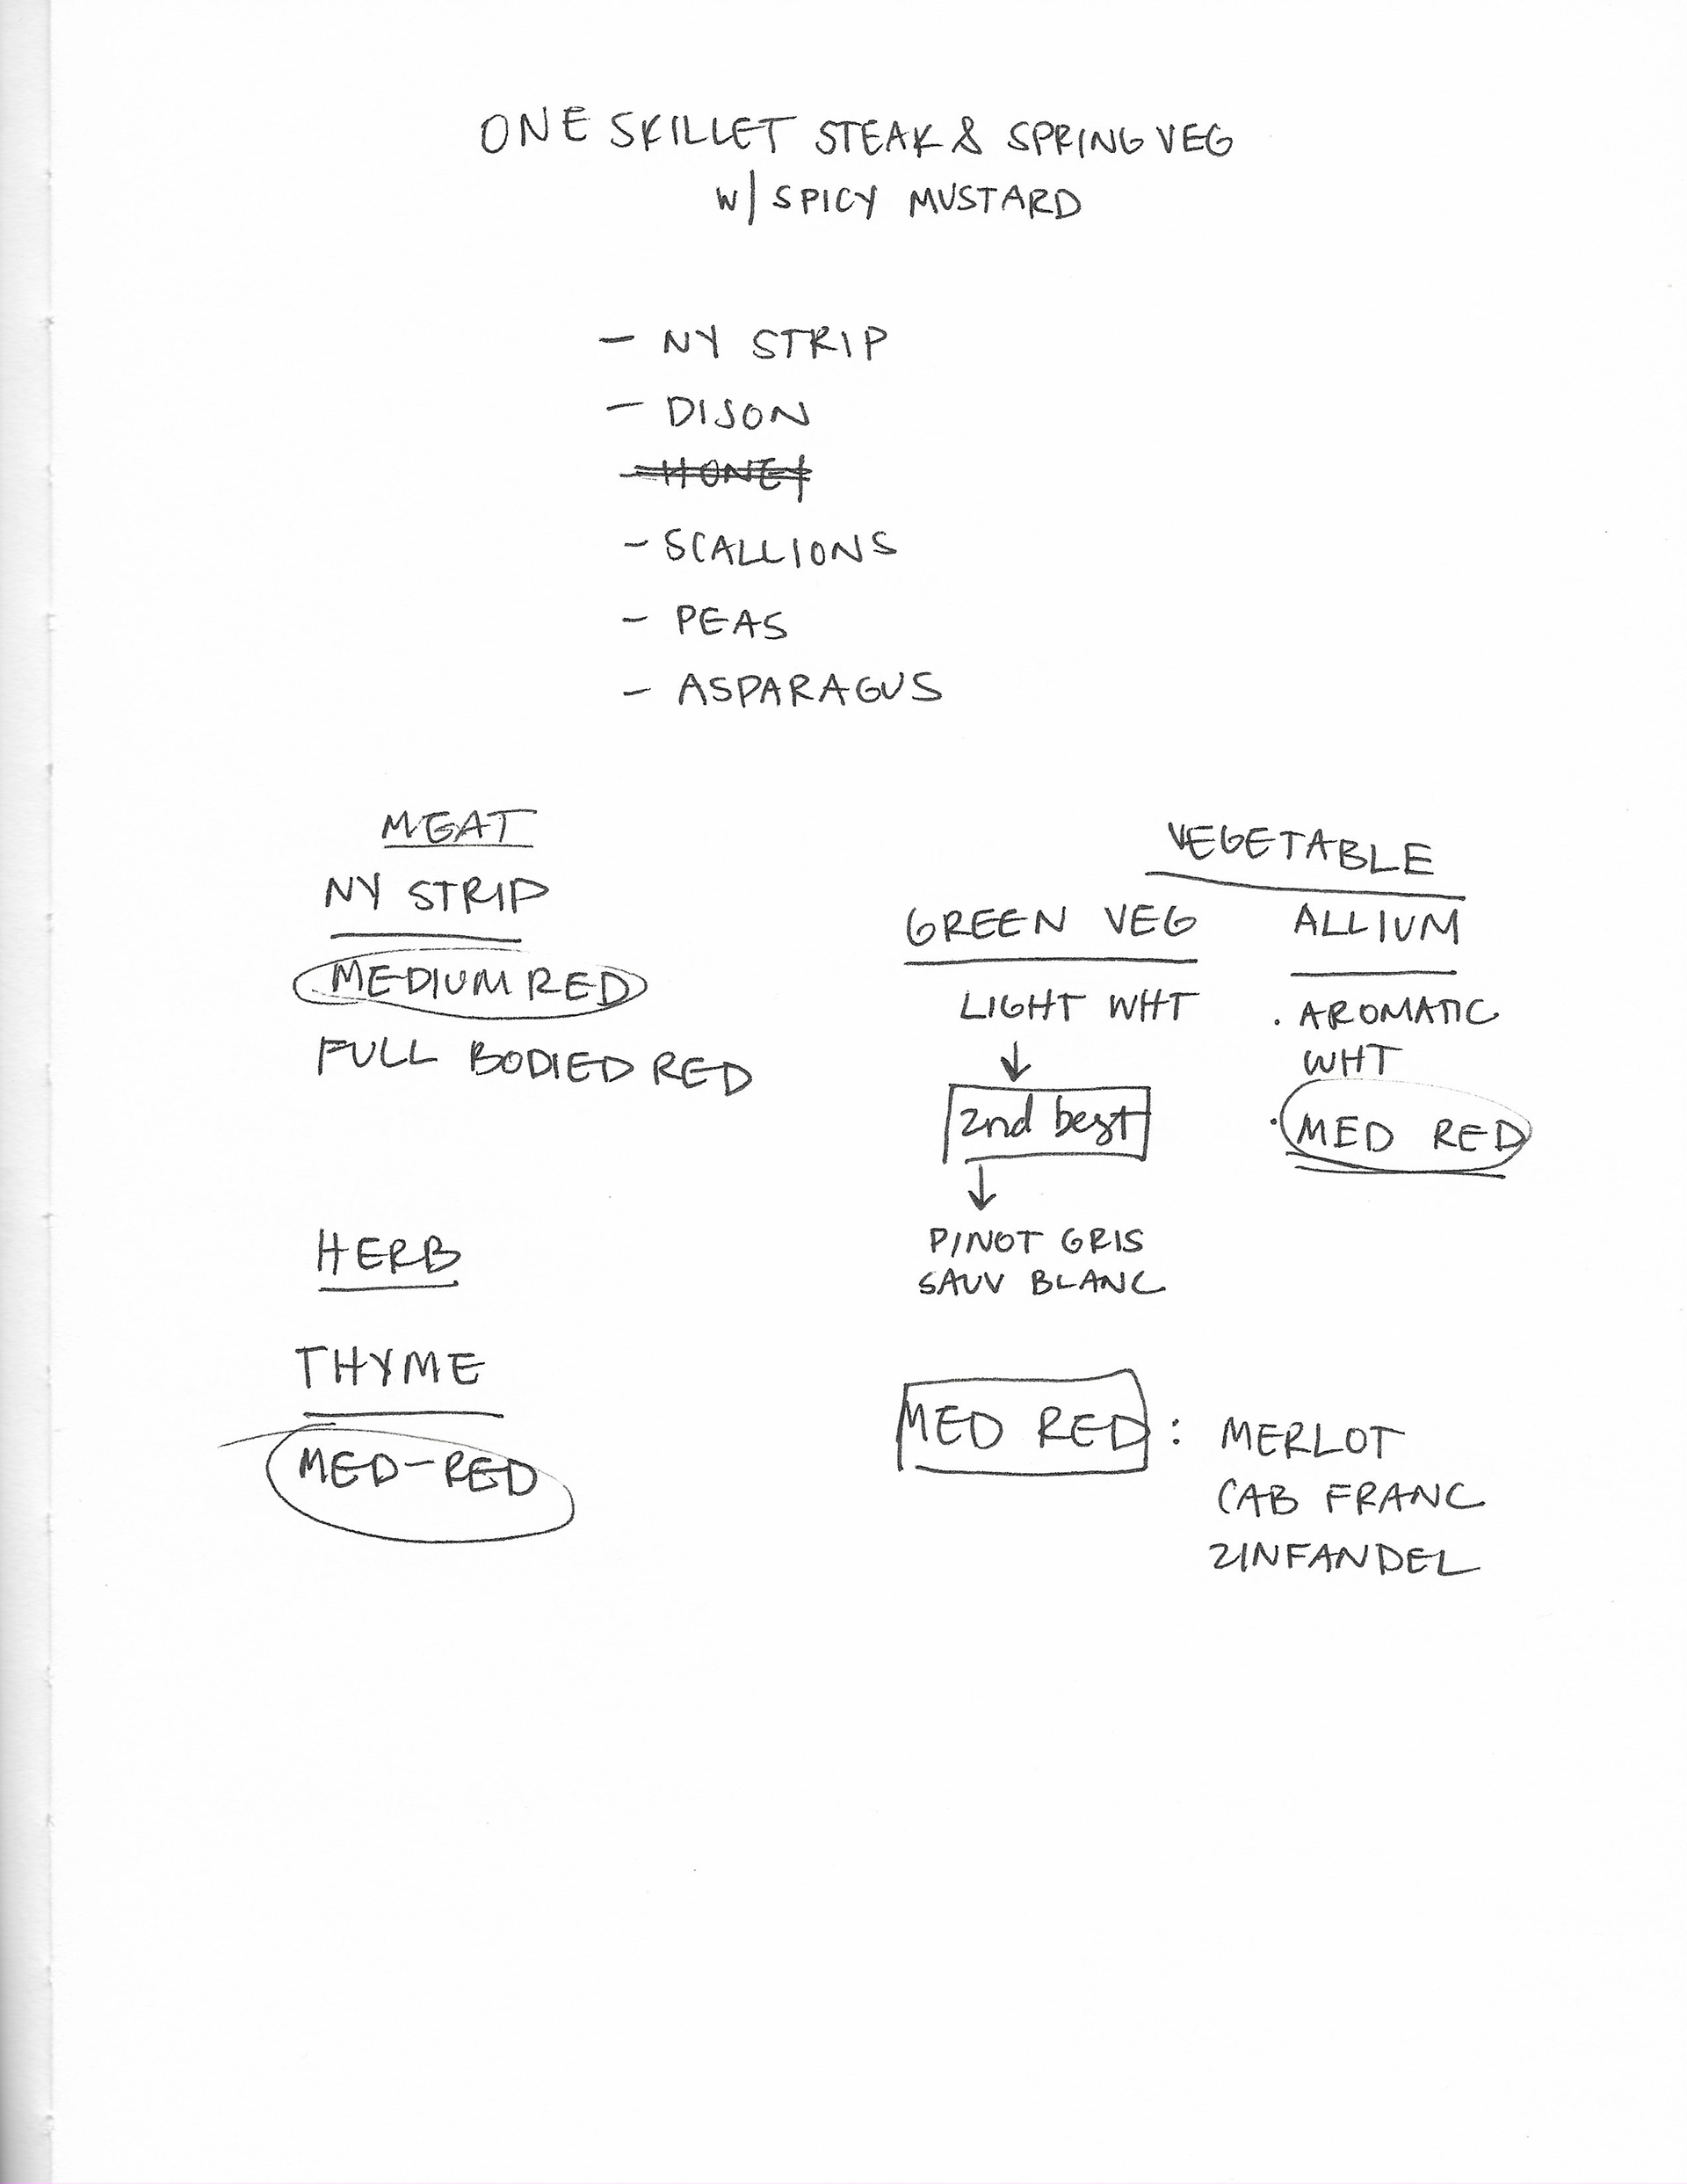 ONE SKILLET STEAK & SPRING VEG
W/ SPICY MUSTARD
- NY STRIP
- DIJON
- HONEY
- SCALLIONS
- PEAS
- ASPARAGUS
MEAT
NY STRIP
MEDIUM RED
FULL BODIED RED
HERB
THYME
MED-RED
VEGETABLE
GREEN VEG
LIGHT WHT
↓
2nd best
↓
PINOT GRIS
SAUV BLANC
ALLIUM
· AROMATIC
WHT
· MED RED
MED RED : MERLOT
CAB FRANC
ZINFANDEL